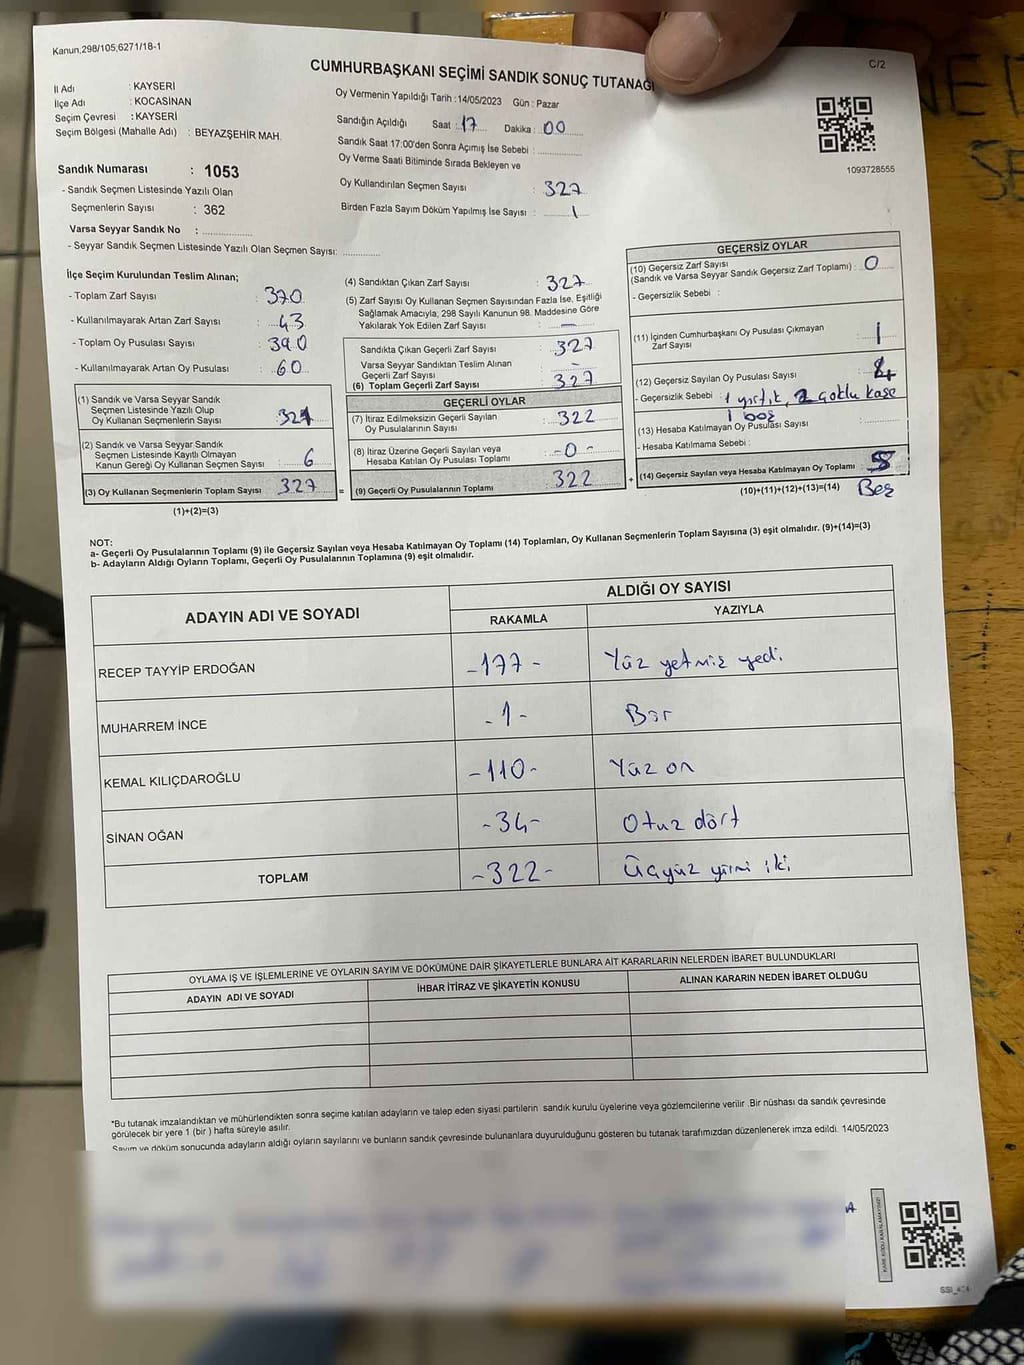 Kanun,298/105,6271/18-1
C/2
CUMHURBAŞKANI SEÇİMİ SANDIK SONUÇ TUTANAĞI
İl Adı : KAYSERİ
İlçe Adı : KOCASİNAN
Seçim Çevresi : KAYSERİ
Seçim Bölgesi (Mahalle Adı) : BEYAZŞEHİR MAH.
Sandık Numarası : 1053
- Sandık Seçmen Listesinde Yazılı Olan
Seçmenlerin Sayısı : 362
Varsa Seyyar Sandık No :
- Seyyar Sandık Seçmen Listesinde Yazılı Olan Seçmen Sayısı:
Oy Vermenin Yapıldığı Tarih : 14/05/2023 Gün : Pazar
Sandığın Açıldığı Saat : 17 Dakika : 00
Sandık Saat 17:00'den Sonra Açımış İse Sebebi :
Oy Verme Saati Bitiminde Sırada Bekleyen ve
Oy Kullandırılan Seçmen Sayısı : 327
Birden Fazla Sayım Döküm Yapılmış İse Sayısı : 1
1093728555
İlçe Seçim Kurulundan Teslim Alınan;
- Toplam Zarf Sayısı : 370
- Kullanılmayarak Artan Zarf Sayısı : 43
- Toplam Oy Pusulası Sayısı : 390
- Kullanılmayarak Artan Oy Pusulası : 60
(1) Sandık ve Varsa Seyyar Sandık
Seçmen Listesinde Yazılı Olup
Oy Kullanan Seçmenlerin Sayısı : 321
(2) Sandık ve Varsa Seyyar Sandık
Seçmen Listesinde Kayıtlı Olmayan
Kanun Gereği Oy Kullanan Seçmen Sayısı : 6
(3) Oy Kullanan Seçmenlerin Toplam Sayısı : 327
(1)+(2)=(3)
(4) Sandıktan Çıkan Zarf Sayısı : 327
(5) Zarf Sayısı Oy Kullanan Seçmen Sayısından Fazla İse, Eşitliği
Sağlamak Amacıyla, 298 Sayılı Kanunun 98. Maddesine Göre
Yakılarak Yok Edilen Zarf Sayısı : -
Sandıkta Çıkan Geçerli Zarf Sayısı : 327
Varsa Seyyar Sandıktan Teslim Alınan
Geçerli Zarf Sayısı : -
(6) Toplam Geçerli Zarf Sayısı : 327
GEÇERLİ OYLAR
(7) İtiraz Edilmeksizin Geçerli Sayılan
Oy Pusulalarının Sayısı : 322
(8) İtiraz Üzerine Geçerli Sayılan veya
Hesaba Katılan Oy Pusulası Toplamı : -0-
= (9) Geçerli Oy Pusulalarının Toplamı : 322
GEÇERSİZ OYLAR
(10) Geçersiz Zarf Sayısı
(Sandık ve Varsa Seyyar Sandık Geçersiz Zarf Toplamı) : 0
- Geçersizlik Sebebi :
(11) İçinden Cumhurbaşkanı Oy Pusulası Çıkmayan
Zarf Sayısı : 1
(12) Geçersiz Sayılan Oy Pusulası Sayısı : 4
- Geçersizlik Sebebi : 1 yırtık, 2 çoklu kaşe
1 boş
(13) Hesaba Katılmayan Oy Pusulası Sayısı :
- Hesaba Katılmama Sebebi :
+ (14) Geçersiz Sayılan veya Hesaba Katılmayan Oy Toplamı : 5
(10)+(11)+(12)+(13)=(14) Beş
NOT:
a- Geçerli Oy Pusulalarının Toplamı (9) ile Geçersiz Sayılan veya Hesaba Katılmayan Oy Toplamı (14) Toplamları, Oy Kullanan Seçmenlerin Toplam Sayısına (3) eşit olmalıdır. (9)+(14)=(3)
b- Adayların Aldığı Oyların Toplamı, Geçerli Oy Pusulalarının Toplamına (9) eşit olmalıdır.
ADAYIN ADI VE SOYADI ALDIĞI OY SAYISI
RAKAMLA YAZIYLA
RECEP TAYYİP ERDOĞAN -177- Yüz yetmiş yedi
MUHARREM İNCE -1- Bir
KEMAL KILIÇDAROĞLU -110- Yüz on
SİNAN OĞAN -34- Otuz dört
TOPLAM -322- Üçyüz yirmi iki
OYLAMA İŞ VE İŞLEMLERİNE VE OYLARIN SAYIM VE DÖKÜMÜNE DAİR ŞİKAYETLERLE BUNLARA AİT KARARLARIN NELERDEN İBARET BULUNDUKLARI
ADAYIN ADI VE SOYADI İHBAR İTİRAZ VE ŞİKAYETİN KONUSU ALINAN KARARIN NEDEN İBARET OLDUĞU
*Bu tutanak imzalandıktan ve mühürlendikten sonra seçime katılan adayların ve talep eden siyasi partilerin sandık kurulu üyelerine veya gözlemcilerine verilir .Bir nüshası da sandık çevresinde
görülecek bir yere 1 (bir ) hafta süreyle asılır.
Sayım ve döküm sonucunda adayların aldığı oyların sayılarını ve bunların sandık çevresinde bulunanlara duyurulduğunu gösteren bu tutanak tarafımızdan düzenlenerek imza edildi. 14/05/2023